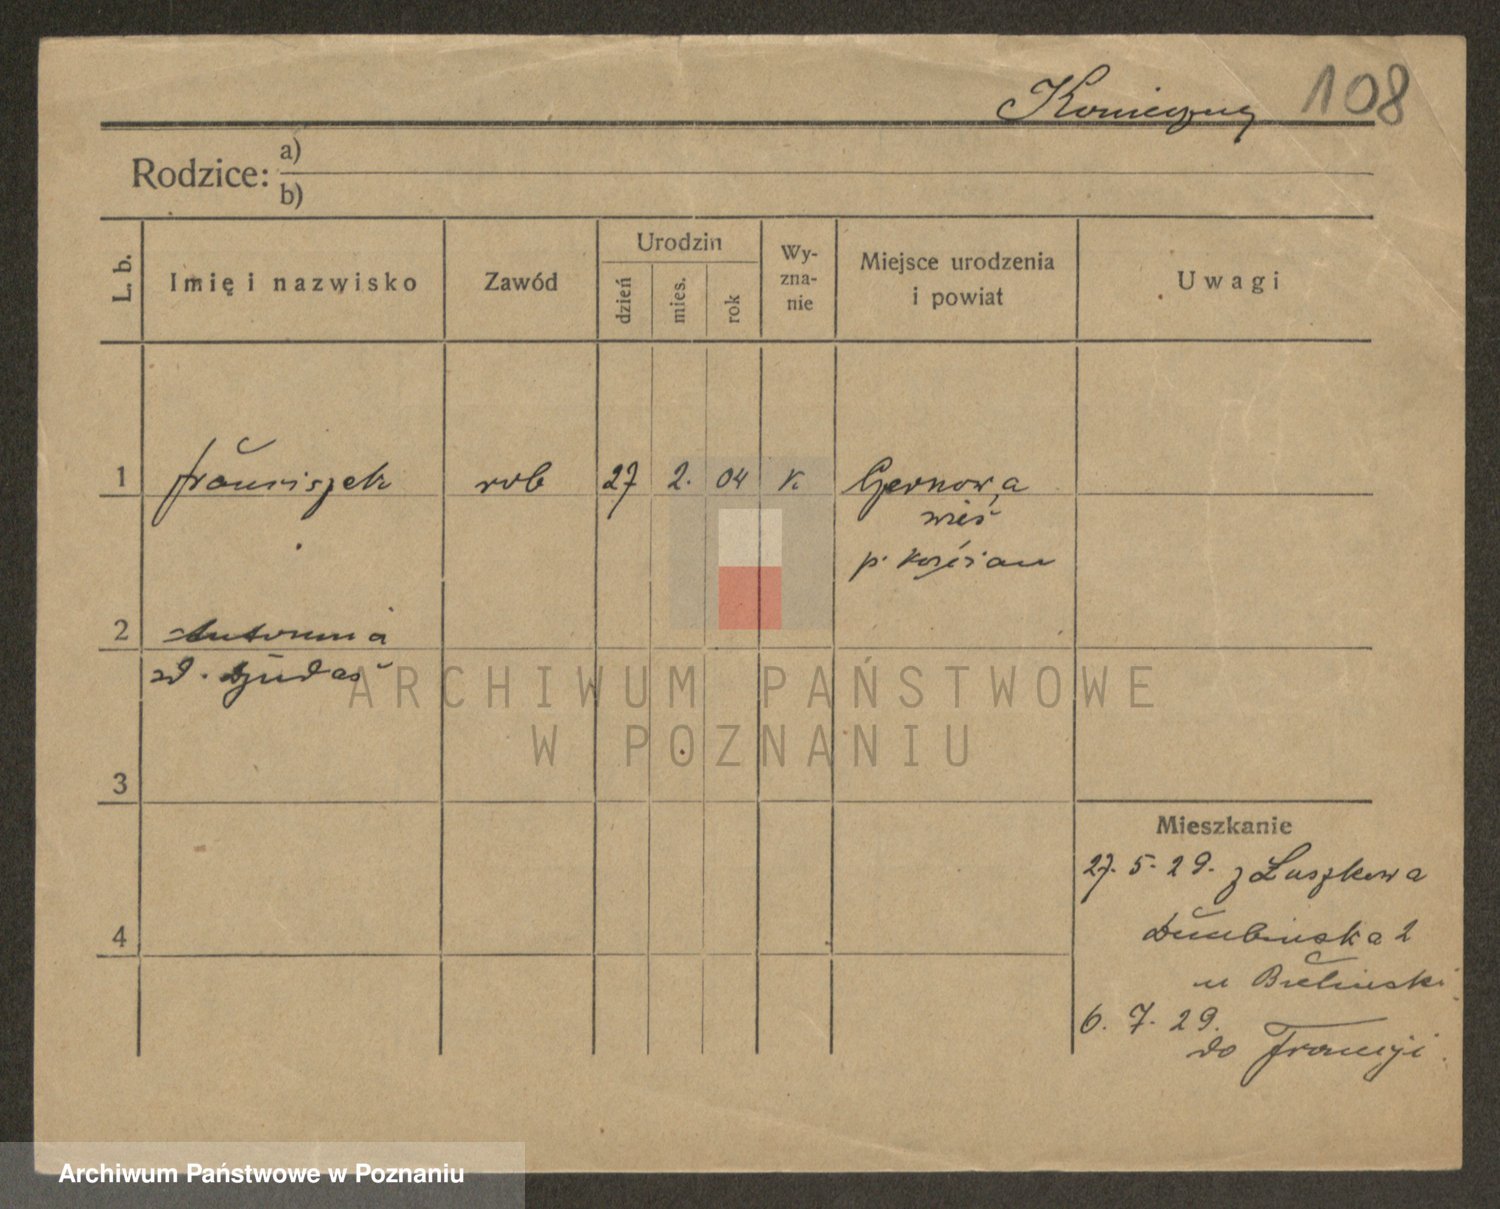 Konieczny 108
Rodzice: a)
b)
L. b.
Imię i nazwisko
Zawód
Urodzin
dzień
mies.
rok
Wy-
zna-
nie
Miejsce urodzenia
i powiat
Uwagi
1 Franciszek rob 27 2. 04 k Czernowa
wieś
p. Kościan
2 Antonina
zd.
ARCHIWUM PAŃSTWOWE
W POZNANIU
3
Mieszkanie
27. 5. 29. z Łuszkowa
4
Dembinska 2
u Bielinski
6. 7. 29.
do Francji.
Archiwum Państwowe w Poznaniu